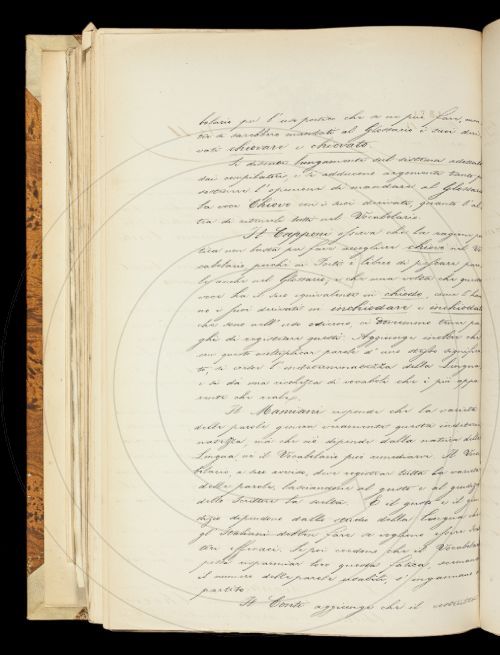 bolario per l'uso poetico che se ne può fare, men
tre si sarebbero mandati al Glossario i suoi deri
vati chiovare e chiovato.
Si discute lungamente sul sistema adottato
dai compilatori, e si adducono argomenti tanto per
sostenere l'opinione di mandare al Glossario
la voce Chiovo con i suoi derivati, quanto l'al
tra di ritenerle tutte nel Vocabolario.
Il Capponi osserva che la ragione po
tica non basta per fare accogliere chiovo nel Vo
cabolario, perchè i Poeti è libero di pescare paro
le anche nel Glossario, e che una volta che questa
voce ha il suo equivalente in chiodo, dove l'han
no i suoi derivati in inchiodare e inchiodato
che sono nell'uso odierno, ci dovremmo tener pa
ghi di registrare questi. Aggiunge inoltre che
con questo moltiplicar parole d'uno stesso significa
to, si cade l'indeterminatezza della Lingua,
e si dà una ricchezza di vocaboli che è più appa
rente che reale.
Il Mamiani risponde che la varietà
delle parole genera veramente questa indetermi
natezza, ma che ciò dipende dalla natura della
Lingua nè il Vocabolario può rimediarvi. Il Voca
bolario, a suo avviso, deve registrar tutta la varietà
delle parole, lasciandone al gusto e al giudizio
dello Scrittore la scelta. E il gusto e il giu
dizio dipendono dallo studio della Lingua che
gl'Italiani debbon fare se vogliono essere Scrit
tori efficaci. Se poi credono che il Vocabolario
possa risparmiar loro questa fatica, scemando
il numero delle parole usabili, s'ingannano a
partito.
Il Conti aggiunge che il